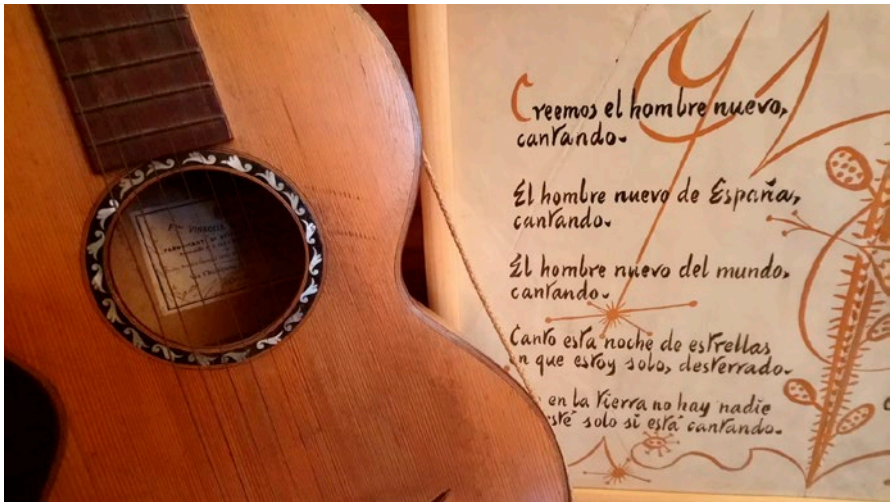 Creemos el hombre nuevo,
cantando.
El hombre nuevo de España,
cantando.
El hombre nuevo del mundo,
cantando.
Canto esta noche de estrellas
n que estoy solo, desterrado.
en la tierra no hay nadie
esté solo si está cantando.